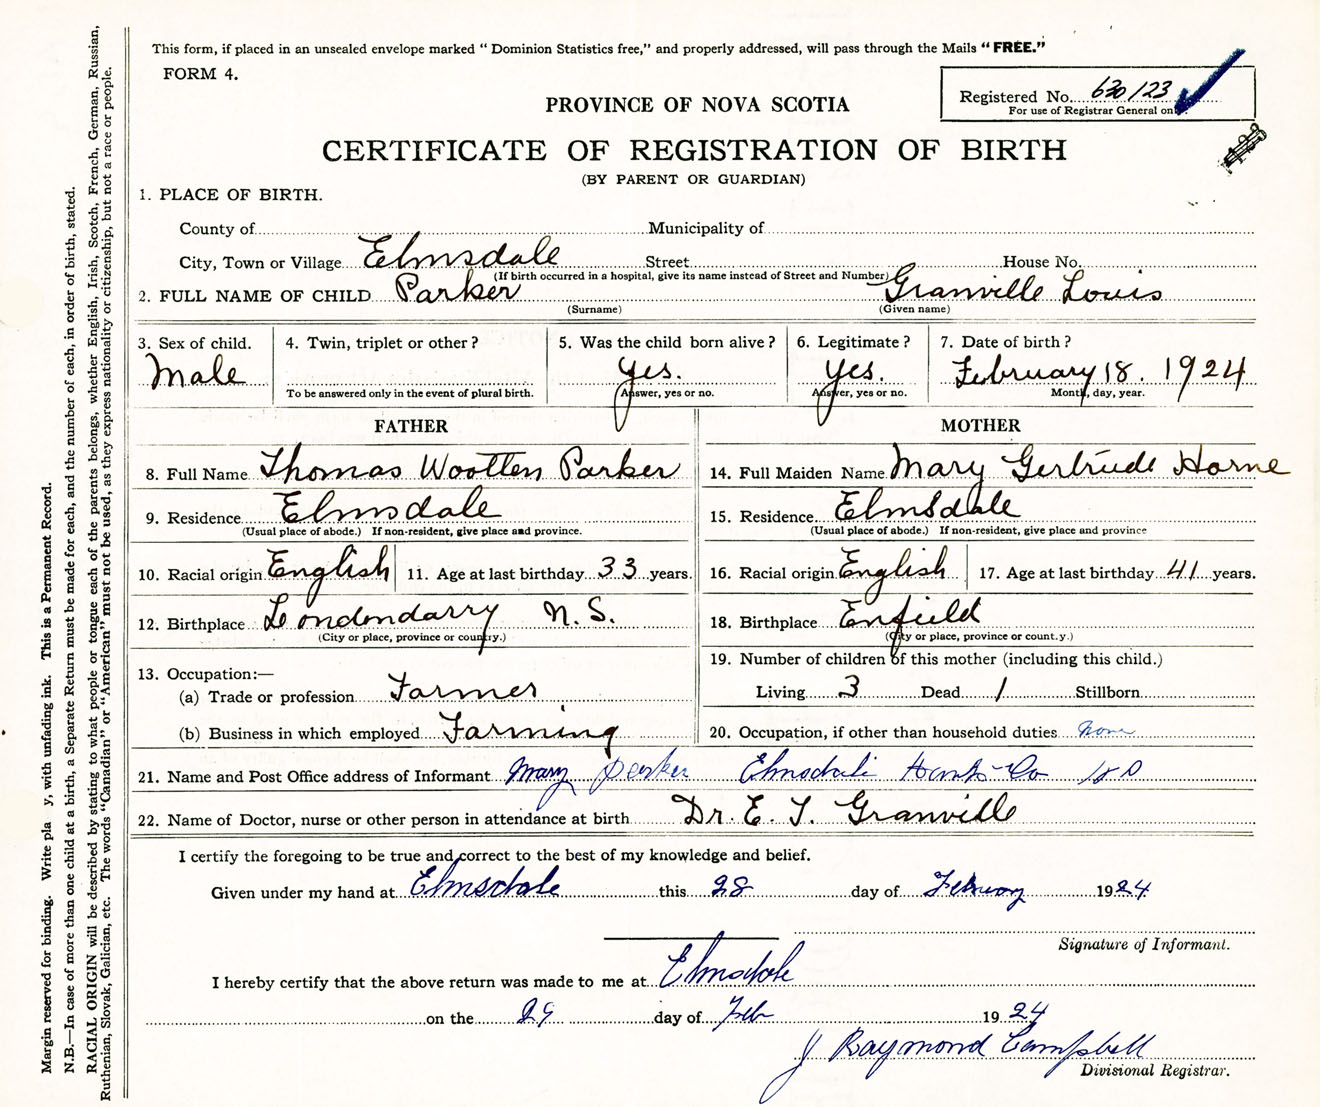 This form, if placed in an unsealed envelope marked "Dominion Statistics free," and properly addressed, will pass through the Mails "FREE."
FORM 4.
Registered No. 630123
For use of Registrar General on
PROVINCE OF NOVA SCOTIA
CERTIFICATE OF REGISTRATION OF BIRTH
(BY PARENT OR GUARDIAN)
1. PLACE OF BIRTH.
County of Municipality of
City, Town or Village Elmsdale Street House No.
(If birth occurred in a hospital, give its name instead of Street and Number)
2. FULL NAME OF CHILD Parker Granville Louis
(Surname) (Given name)
3. Sex of child. 4. Twin, triplet or other? 5. Was the child born alive? 6. Legitimate? 7. Date of birth?
Male Yes. Yes. February 18. 1924
To be answered only in the event of plural birth. Answer, yes or no. Answer, yes or no. Month, day, year.
FATHER MOTHER
8. Full Name Thomas Wootten Parker 14. Full Maiden Name Mary Gertrude Horne
9. Residence Elmsdale 15. Residence Elmsdale
(Usual place of abode.) If non-resident, give place and province. (Usual place of abode.) If non-resident, give place and province
10. Racial origin English 11. Age at last birthday 33 years. 16. Racial origin English 17. Age at last birthday 41 years.
12. Birthplace Londondarry N.S. 18. Birthplace Enfield
(City or place, province or country.) (City or place, province or count.y.)
13. Occupation:— 19. Number of children of this mother (including this child.)
(a) Trade or profession Farmer Living 3 Dead 1 Stillborn
(b) Business in which employed Farming 20. Occupation, if other than household duties None
21. Name and Post Office address of Informant Mary Parker Elmsdale Hants Co
22. Name of Doctor, nurse or other person in attendance at birth Dr. E. T. Granville
I certify the foregoing to be true and correct to the best of my knowledge and belief.
Given under my hand at Elmsdale this 28 day of February 1924
Signature of Informant.
I hereby certify that the above return was made to me at Elmsdale
on the 29 day of Feb 1924
J Raymond Campbell
Divisional Registrar.
Margin reserved for binding. Write pla y, with unfading ink. This is a Permanent Record.
N.B.—In case of more than one child at a birth, a Separate Return must be made for each, and the number of each, in order of birth, stated.
RACIAL ORIGIN will be described by stating to what people or tongue each of the parents belongs, whether English, Irish, Scotch, French, German, Russian,
Ruthenian, Slovak, Galician, etc. The words "Canadian" or "American" must not be used, as they express nationality or citizenship, but not a race or people.